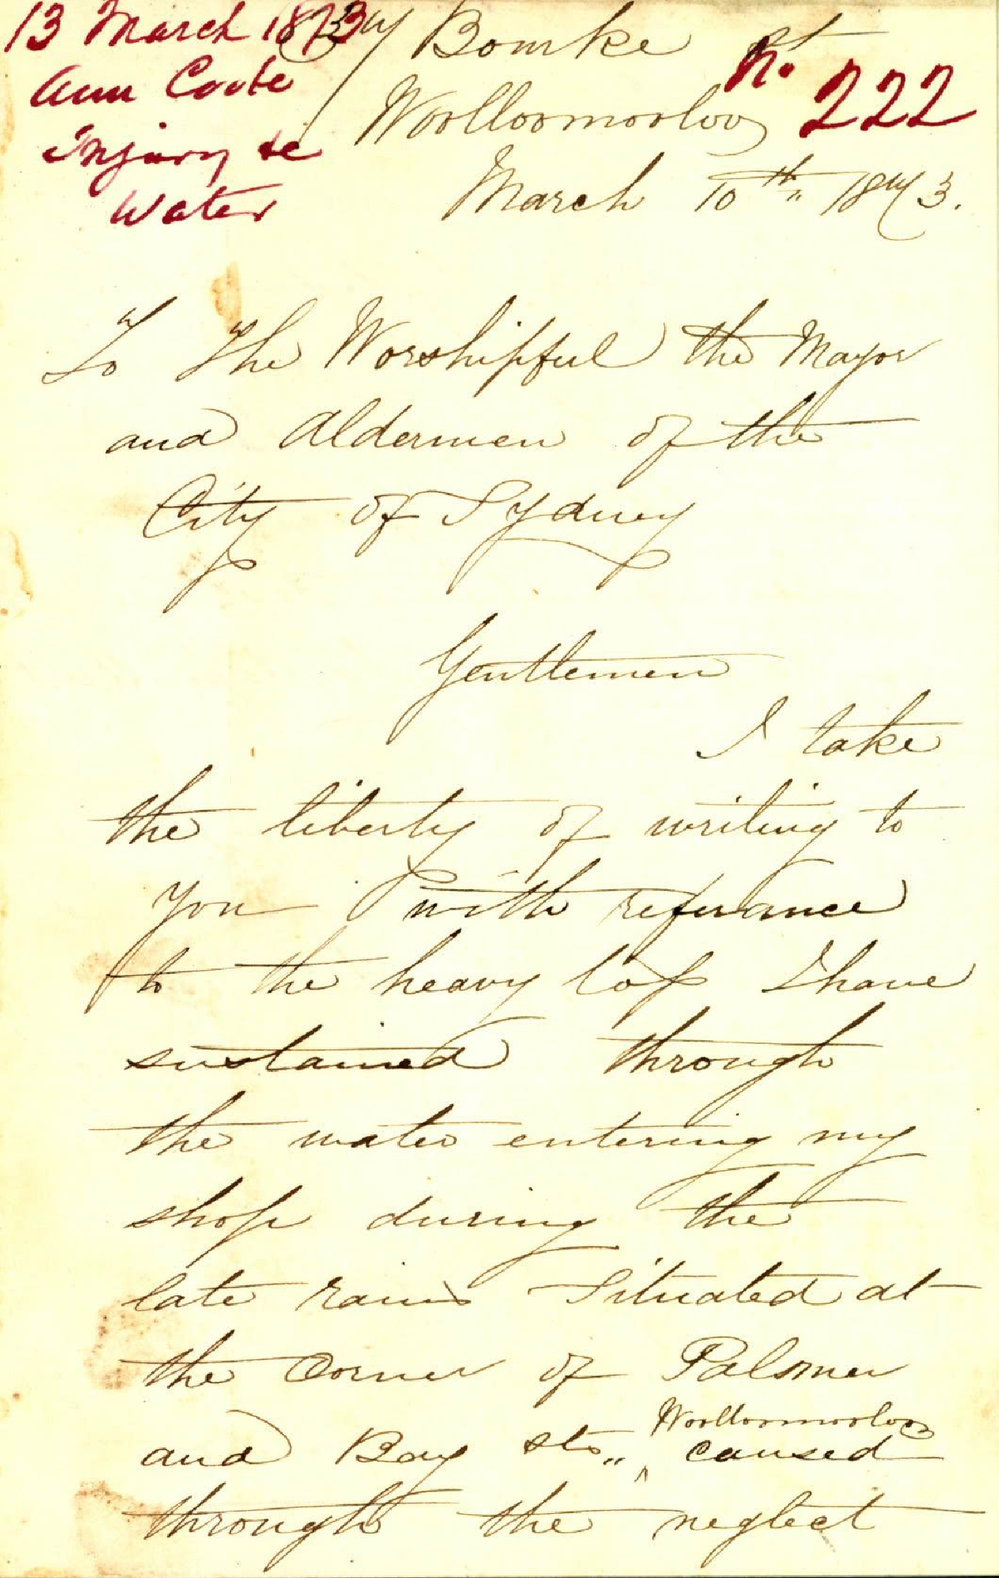 13 March 1873
Ann Coote
Injury to
Water
Bourke St
No. 222
Woolloomooloo
March 10th 1873.
To The Worshipful the Mayor
and Aldermen of the
City of Sydney
Gentlemen
I take
the liberty of writing to
you with referance
to the heavy loss I have
sustained through
the water entering my
shop during the
late rains Situated at
the Corner of Palmer
and Bay sts,, ^ Woolloomooloo caused
through the neglect